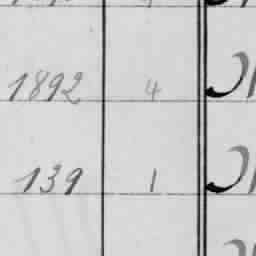 1892 4
139 1